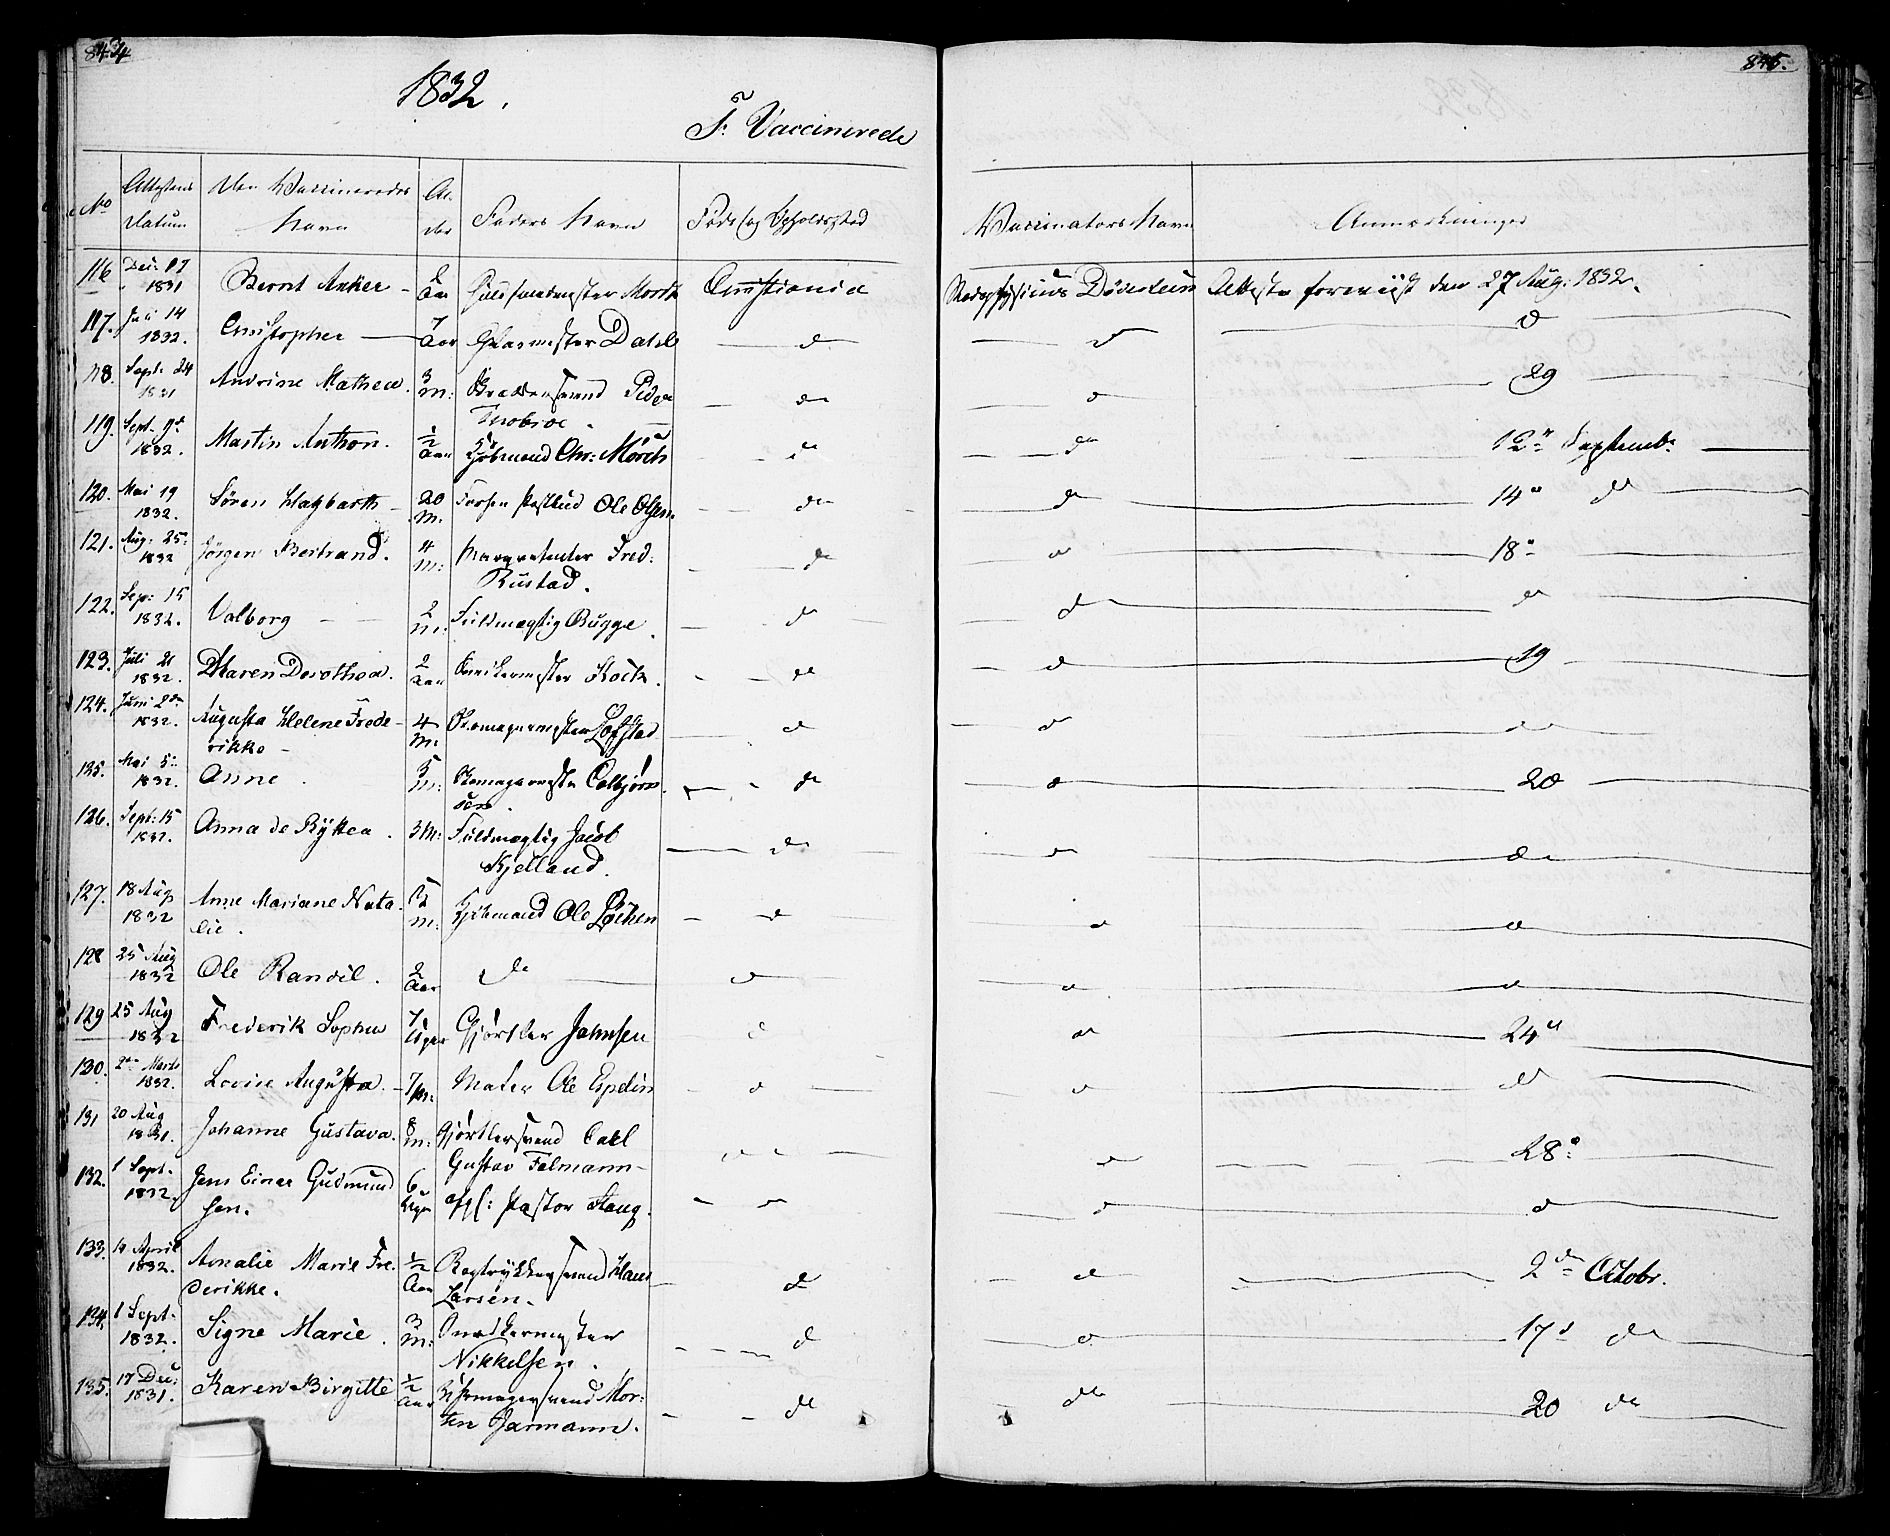 834
845.
1832.
F. Vaccinerede
No | Attestens Datum | Den Vaccineredes Navn | Al-der | Faders Navn | Føde- og Opholdssted | Vaccinators Navn | Anmærkninger
116 | Dec: 17 1831 | Bernt Anker | Aar | Guldsmedmester | Christiania | Stadsphysicus Döderlein | Attesten foreviist den 27 Aug: 1832.
117. | Juli 14 1832. | Christopher | 7 Aar | Glarmester Dahl | d | d | d
118. | Sept: 24 1831 | Andrine Mathea. | 3 M: | Peder | d | d | 29
119. | Sept. 1832. | Martin Anthon. | 1/2 Aar | Kjöbmand Chr: Mörch | d | d | 12te Septemb.
120. | Mai 19 1832. | Sören Hagbarth | 20 M. | Ole Olsen. | do | d | 14 do
121. | Aug: 25: 1832 | Jörgen Bertrand. | 4 M: | Marqvetenter Fred: Rustad. | d | d | 18
122. | Sep: 15 1832. | Valborg | 2 M: | Fuldmægtig Bugge. | do | d | do
123. | Juli 21 1832. | Maren Dorothea. | 2 Aar | Koch. | do | d | 19
124. | Juni 1832. | Augusta Helene Frede-rikke | 4 M: | Skomagermester Löfstad | d | d | do
125. | Mai 5 1832. | Anne. | 5 M: | Skomagermester Colbjörn-sen. | do | d | 20
126. | Sept: 15 1832. | Anna de Rytter. | 3 M: | Fuldmægtig Jacob Kjelland. | do | d | do
127. | 18 Aug 1832 | Anne Mariane Nata-lie. | 5 M: | Kjöbmand Ole Löchen | d | d | d
128 | 25 Aug 1832 | Ole Randil. | 2 Aar | do | d | d | d
129 | 25 Aug 1832 | Frederik Sophus | 7 Uger | Gjörtler Johnsen | d | d | 24
130. | Marts 1832. | Lovise Augusta. | 7 M: | Maler Ole Espelin | d | d | do
131 | 20 Aug 1831. | Johanne Gustava. | 8 M: | Gjörtlersvend Carl Gustav Falmann | d | d | 28
132. | 1 Sept. 1832. | Jens Einar Gudmund sen. | 6 Uger | Pastor | d | d | d
133. | 14 April 1832. | Amalie Marie Fre-derikke. | 1/2 Aar | Bogtrykkersvend Hans Larsen. | d | d | 2den Octobr.
134. | 1 Sept. 1832. | Signe Marie. | 3 M: | Snedkermester Nikkelsen. | d | d | 17 do
135. | 17 Dec: 1831. | Karen Birgitte | 1/2 Aar | Mor-ten Jarmann. | do | do | 20 do